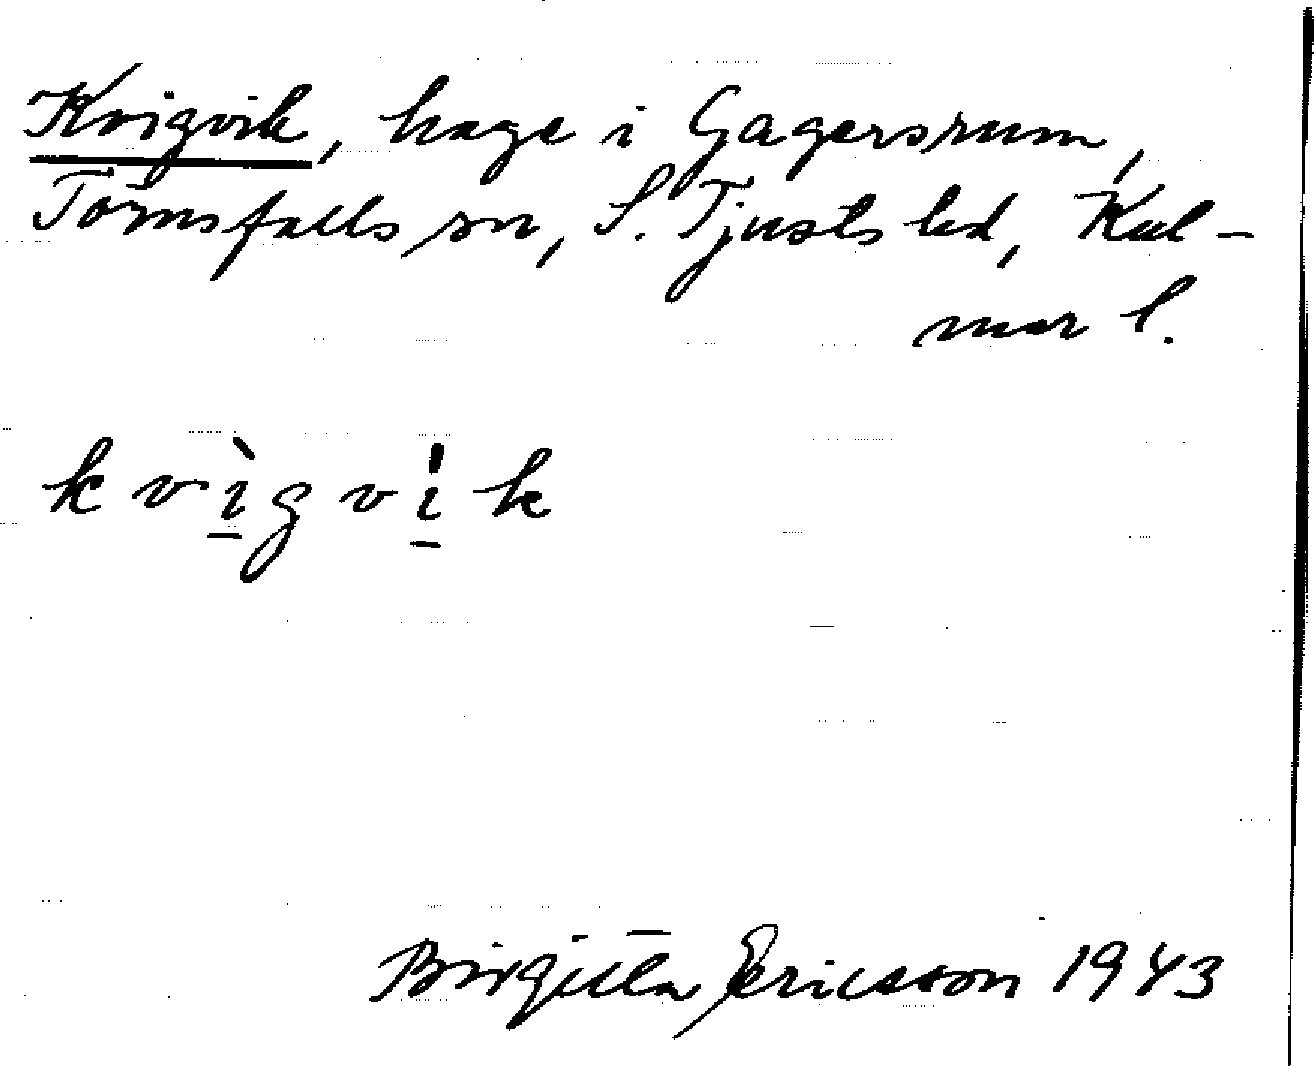 Kvigvik, hage i Gagersrum,
Törnsfalls sn, S. Tjusts hd, Kal-
mar l.
k v ì̱ g v ı̱̍ k
Birgitta Ericsson 1943